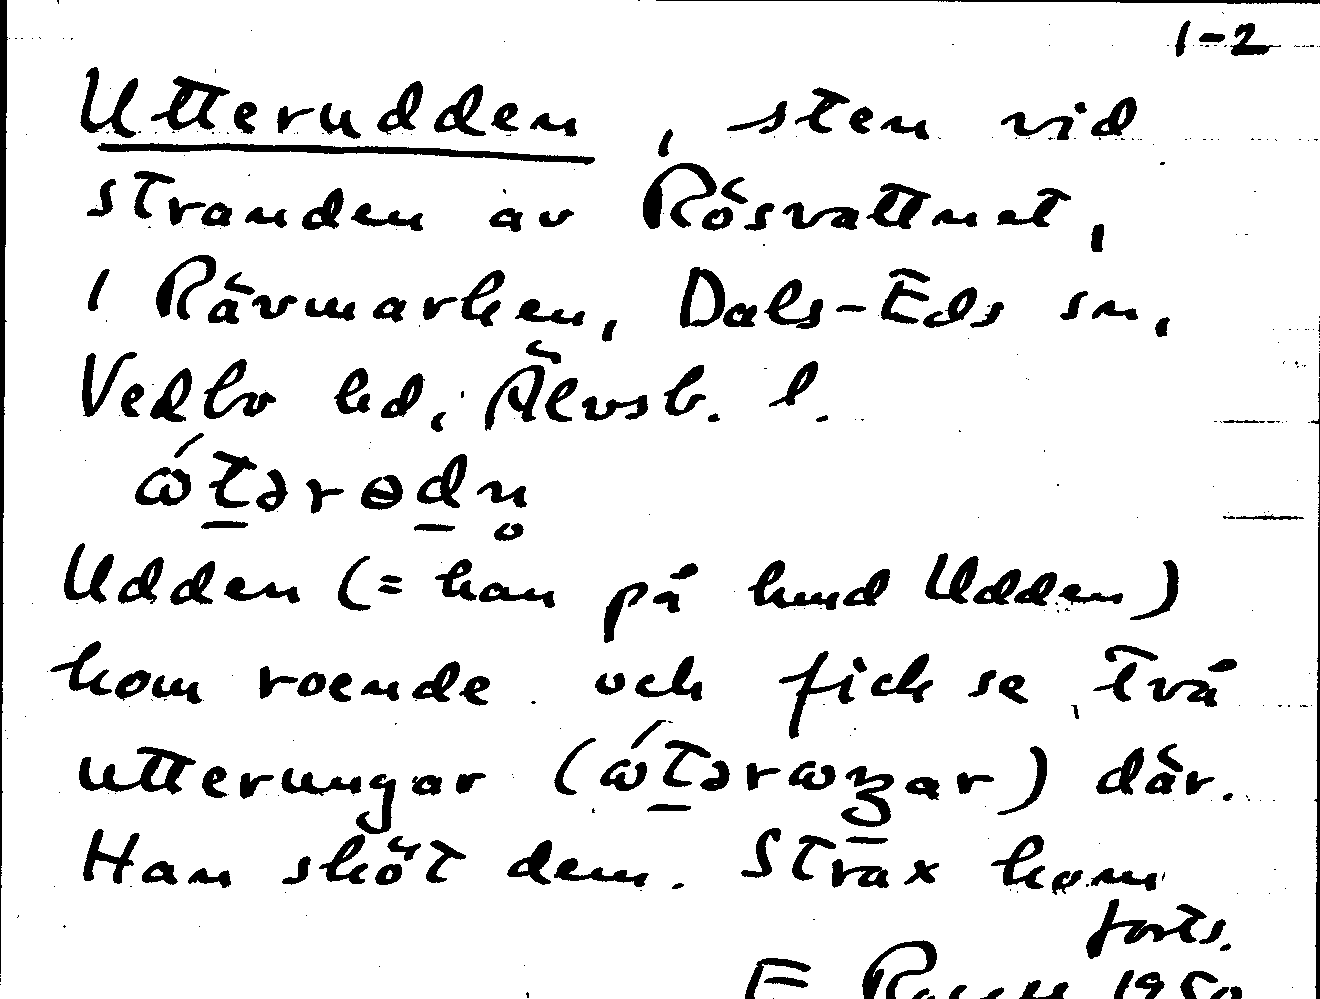 1-2
Utterudden, sten vid
stranden av Rösvattnet,
i Rävmarken, Dals-Eds sn,
Vedbo hd, Älvsb. l.
ώt̲ərɵd̲n̥
Udden (= han på hund Udden)
kom roende och fick se två
utterungar (ώt̲ərωŋ̲ar) där.
Han sköt dem. Strax kom
forts.
E. 1950